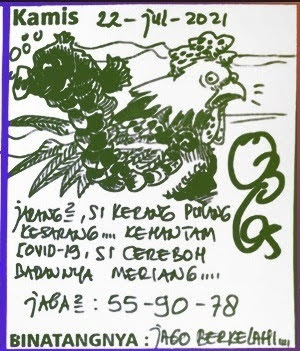 Kamis 22-jul-2021
jARANG², Si KERANG PULANG
KESARANG.... KEHANTAM
COVID-19, Si CEREBOH
BADANNYA MERIANG....
jAGA² : 55-90-78
BINATANGNYA : jAGO BERKELAHI